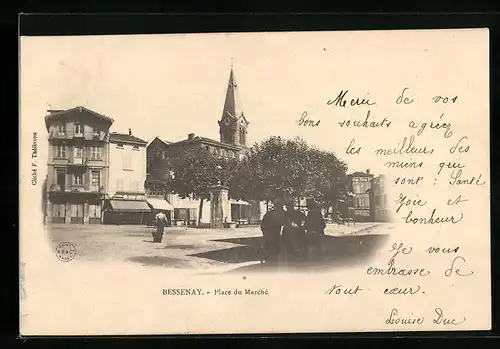 Merci de vos
bons souhaits agréez
les meilleurs des
miens qui
sont : Santé
Joie et
bonheur
Je vous
embrasse de
tout cœur.
Louise Duc
Cliché F. Thélisson
BESSENAY. - Place du Marché